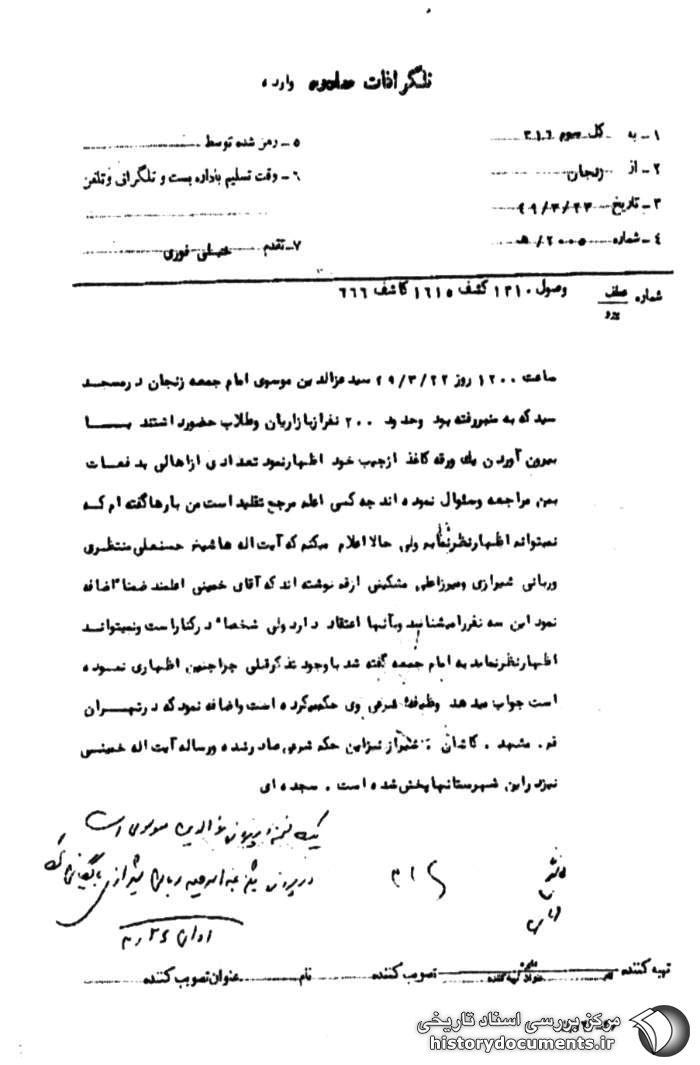 تلگرافات وارده
۱ـ به کل سوم ۳۱۶
۲ـ از زنجان
۳ـ تاریخ ۴۹/۳/۲۳
۴ـ شماره ۲۰۰۵/هـ
۵ـ رمز شده توسط
۶ـ وقت تسلیم باداره پست و تلگراف و تلفن
۷ـ تقدم خیلی فوری
شماره عطف پیرو وصول ۱۳۱۰ کشف ۱۶۱۵ کاشف ۶۶۶
ساعت ۱۲۰۰ روز ۴۹/۳/۲۲ سید عزالدین موسوی امام جمعه زنجان در مسجد
سید که به منبر رفته بود وحدود ۲۰۰ نفر از بازاریان وطلاب حضور داشتند با
بیرون آوردن یک ورقه کاغذ ازجیب خود اظهار نمود تعدادی از اهالی بدفعات
بمن مراجعه وسئوال نموده اند چه کسی اعلم مرجع تقلید است من بارها گفته ام که
نمیتوانم اظهارنظر نمایم ولی حالا اعلام میکنم که آیت اله ها شیخ حسنعلی منتظری
وربانی شیرازی ومیرزاعلی مشکینی ازقم نوشته اند که آقای خمینی اعلمند ضمنا" اضافه
نمود این سه نفر را میشناسد وبآنها اعتقاد دارد ولی شخصا" در کنار است ونمیتواند
اظهارنظر نماید به امام جمعه گفته شد با وجود تذکر قبلی چرا چنین اظهاری نموده
است جواب میدهد وظیفه شرعی وی حکم کرده است واضافه نمود که در تهران
قم . مشهد . کاشان شیراز نیز این حکم شرعی صادر شده ورساله آیت اله خمینی
نیز در این شهرستانها پخش شده است . سجده ای
یک نسخه در پرونده عزالدین موسوی
در پرونده شیخ عبدالرحیم ربانی شیرازی بایگانی
تهیه کننده
نام
عنوان تهیه کننده
تصویب کننده
نام
عنوان تصویب کننده
مرکز بررسی اسناد تاریخی
historydocuments.ir